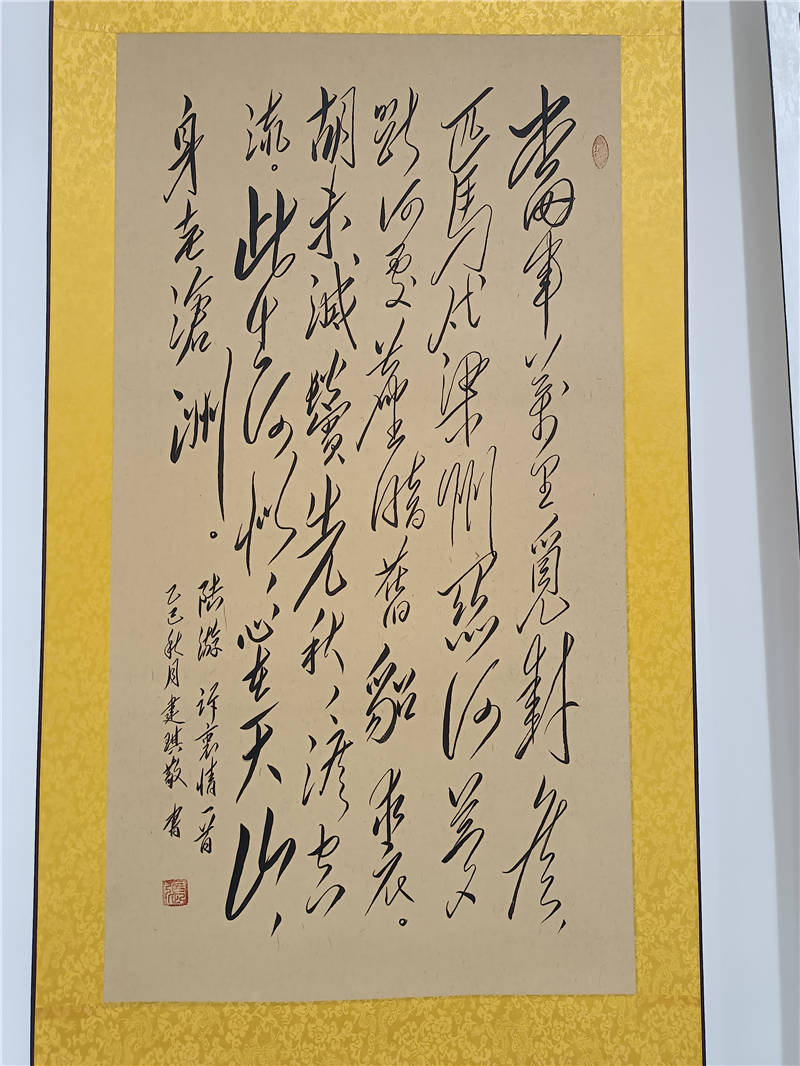 當年萬里覓封侯、
匹馬戍梁州關河夢
斷何處塵暗舊貂裘。
胡未滅鬢先秋、淚空
流。此生、心在天山、
身老滄洲。
陸游 訴衷情一首
乙巳秋月建琪敬書